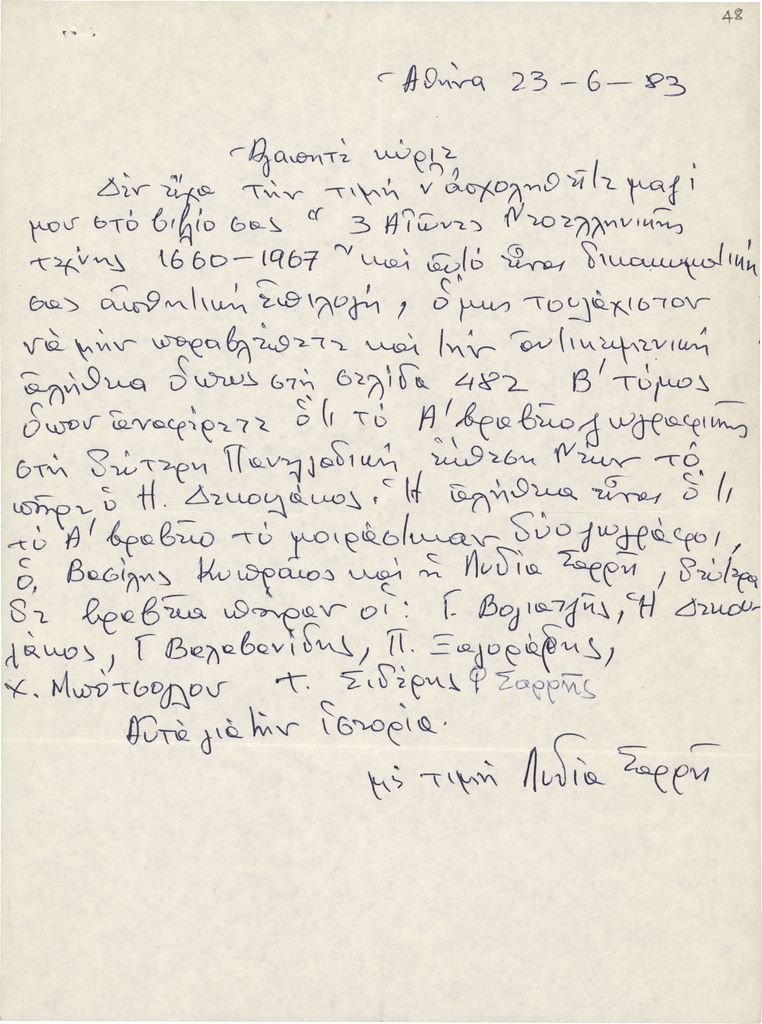 48
Ἀθήνα 23-6-83
Ἀγαπητὲ κύριε
Δὲν εἶχα τὴν τιμή ν' ἀσχοληθεῖτε μαζί
μου στό βιβλίο σας " 3 Αἰῶνες Νεοελληνικῆς
τέχνης 1660-1967 " καί αὐτό εἶναι δικαιωματική
σας αἰσθητική ἐπιλογή, ὅμως τουλάχιστον
νὰ μήν παραβλέπετε καί τήν ἀντικειμενική
ἀλήθεια ὅπως στή σελίδα 482 Β' τόμος
ὅπου ἀναφέρετε ὅτι τὸ Α' βραβεῖο ζωγραφικῆς
στή δεύτερη Πανελλαδική ἔκθεση Νέων τὸ
πῆρε ὁ Η. Δεκουλάκος. Ἡ ἀλήθεια εἶναι ὅτι
τὸ Α' βραβεῖο τὸ μοιράστηκαν δύο ζωγράφοι,
ὁ Βασίλης Κυπραῖος καί ἡ Λυδία Σαρρῆ, δεύτερα
δε βραβεῖα πῆραν οἱ: Γ. Βογιατζῆς, Ἠ Δεκου-
λάκος, Γ Βαλαβανίδης, Π. Ξαγοράρης,
Χ. Μπότσογλου τ. Σιδέρης Φ Σαρρῆς
Αὐτὰ γιὰ τὴν ἱστορία.
μὲ τιμή Λυδία Σαρρῆ